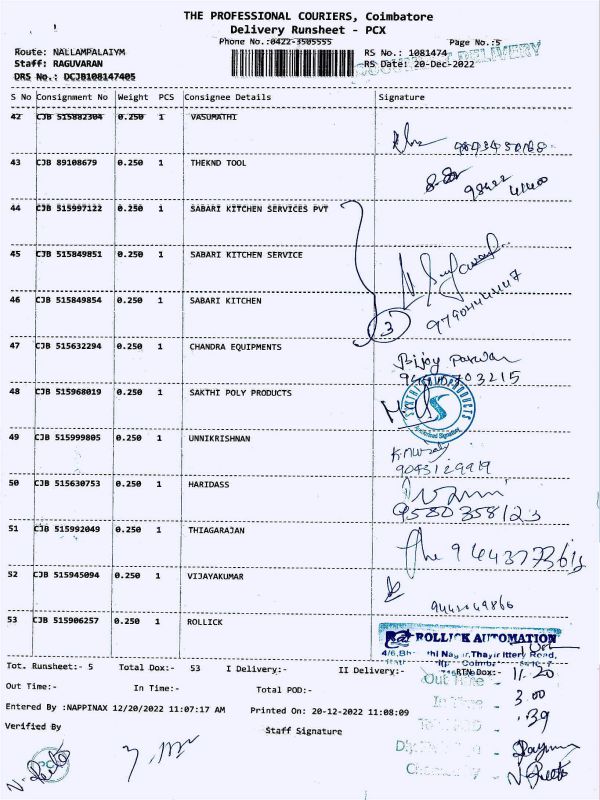 THE PROFESSIONAL COURIERS, Coimbatore
Delivery Runsheet - PCX
Phone No.:0422-3505555 Page No.:5
Route: NALLAMPALAIYM RS No.: 1081474
Staff: RAGUVARAN RS Date: 20-Dec-2022
DELIVERY
DRS No.: DCJB108147405
S No Consignment No Weight PCS Consignee Details Signature
42 CJB 515882304 0.250 1 VASUMATHI
43 CJB 89108679 0.250 1 THEKND TOOL
98422 41400
44 CJB 515997122 0.250 1 SABARI KITCHEN SERVICES PVT
45 CJB 515849851 0.250 1 SABARI KITCHEN SERVICE
46 CJB 515849854 0.250 1 SABARI KITCHEN
3 9790444447
47 CJB 515632294 0.250 1 CHANDRA EQUIPMENTS
Bijoy Paswan
48 CJB 515968019 0.250 1 SAKTHI POLY PRODUCTS
SAKTHI POLY PRODUCTS
S
Authorised Signatory
49 CJB 515999805 0.250 1 UNNIKRISHNAN
9043129919
50 CJB 515630753 0.250 1 HARIDASS
9580358123
51 CJB 515992049 0.250 1 THIAGARAJAN
52 CJB 515945094 0.250 1 VIJAYAKUMAR
9442049866
53 CJB 515906257 0.250 1 ROLLICK
ROLLICK AUTOMATION
Tot. Runsheet:- 5 Total Dox:- 53 I Delivery:- II Delivery:- RTN Dox:-
Out Time - 11.20
Out Time:- In Time:- Total POD:-
In Time - 3.00
Entered By :NAPPINAX 12/20/2022 11:07:17 AM Printed On: 20-12-2022 11:08:09
39
Verified By Staff Signature